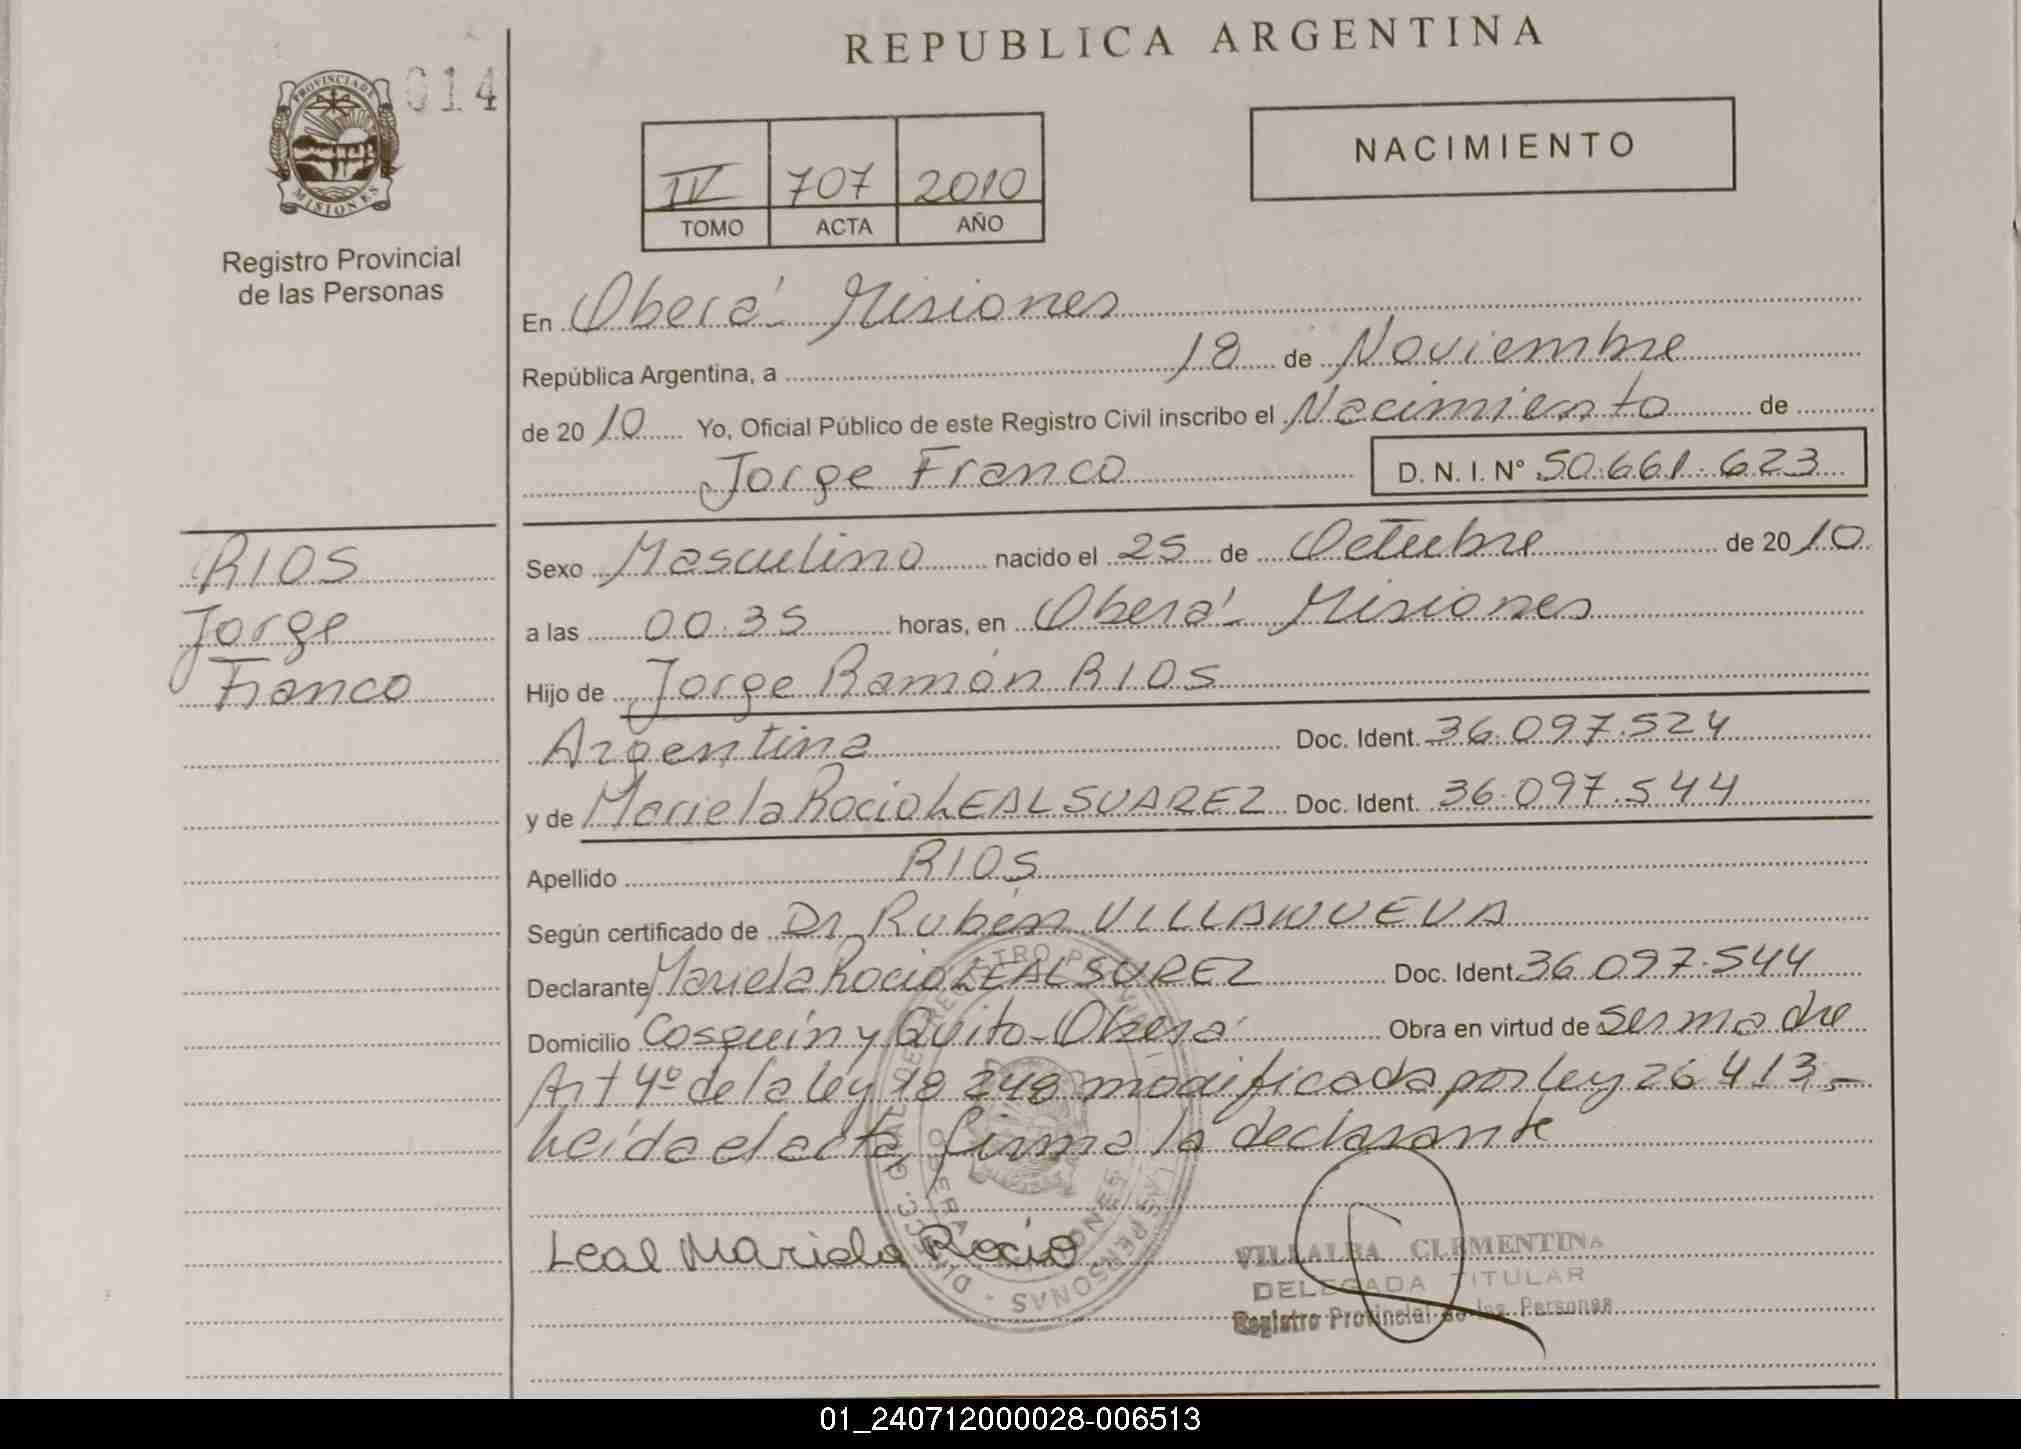 REPUBLICA ARGENTINA
014
PROVINCIA DE
MISIONES
Registro Provincial
de las Personas
NACIMIENTO
IV 707 2010
TOMO ACTA AÑO
En Oberá Misiones
República Argentina, a 18 de Noviembre
de 2010 Yo, Oficial Público de este Registro Civil inscribo el Nacimiento de
Jorge Franco D. N. I. N° 50.661.623
RIOS
Jorge
Franco
Sexo Masculino nacido el 25 de Octubre de 2010
a las 00:35 horas, en Oberá Misiones
Hijo de Jorge Ramón RIOS
Argentina Doc. Ident. 36.097.524
y de Mariela Rocio LEAL SUAREZ Doc. Ident. 36.097.544
Apellido RIOS
Según certificado de Dr Rubén VILLANUEVA
Declarante Mariela Rocio LEAL SUREZ Doc. Ident. 36.097.544
Domicilio Cosquín y Quito - Oberá Obra en virtud de ser madre
Art 4º de la ley 18248 modificada por ley 26413.-
Leída el acta, firma la declarante
Leal Mariela Rocio
VILLALBA CLEMENTINA
DELEGADA TITULAR
Registro Provincial de las Personas
01_240712000028-006513